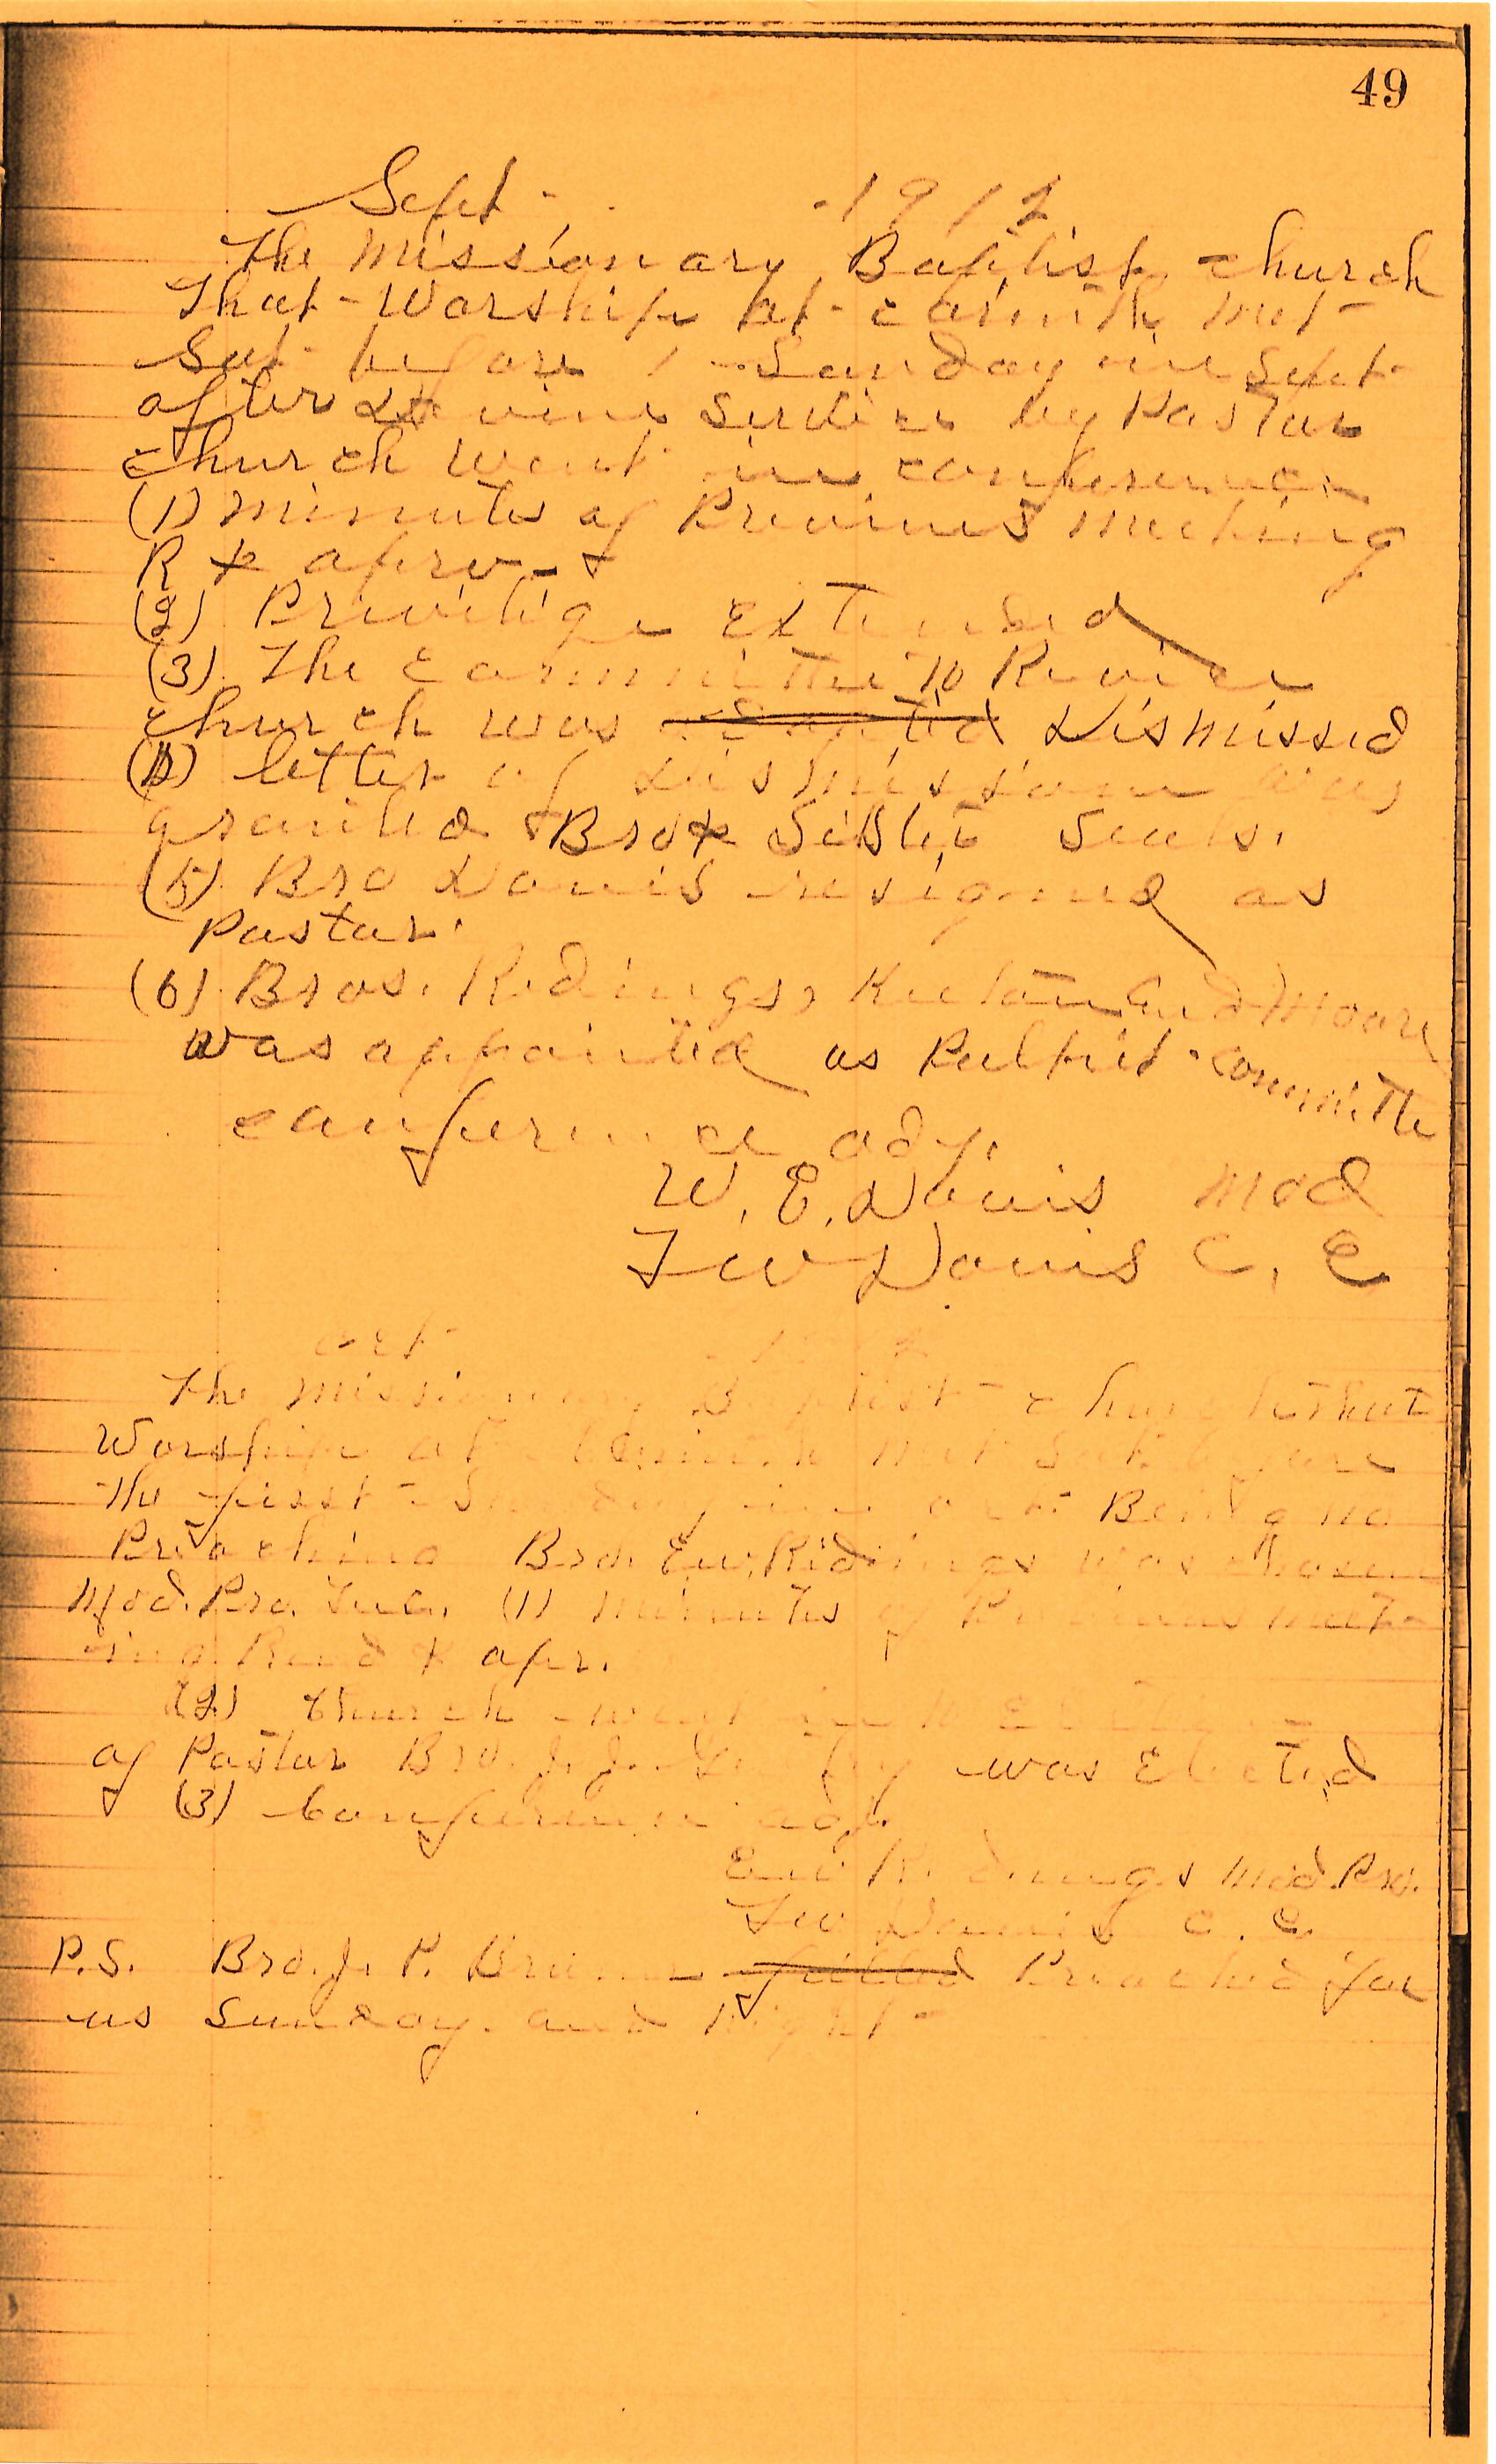 49
Sept - 1912
The Missionary Baptist church
That Worships at Corinth met
Sat. before 1 Sunday in Sept
after Divine Service by Pastor
church went in conference
(1) Minutes of Previous meeting
R & aprov-
(2) Privilige Extended
(3) The Committee to Revise
church was Dismissed
(4) letter of dismission was
granted Bro & Sister
(5) Bro Davis resigned as
Pastor.
(6) Bros. Ridings, and Moore
was appointed as Pulpit Committe
conference adj.
W. E. Davis Mod
Davis C. C
Oct
The Missionary Baptist church that
Worships at Corinth met Sat. before
the first Sunday in Oct. Being no
Preaching Bro. Ew. Ridings was chosen
Mod. Pro. Tem. (1) minutes of Previous meet-
ing Read & apr.
(2) Church went in to Election
of Pastor Bro. J. J. was Elected
(3) Conference adj.
Ew Ridings Mod. Pro.
Davis C. C.
P.S. Bro. J. P. filled Preached for
us Sunday. and Night-